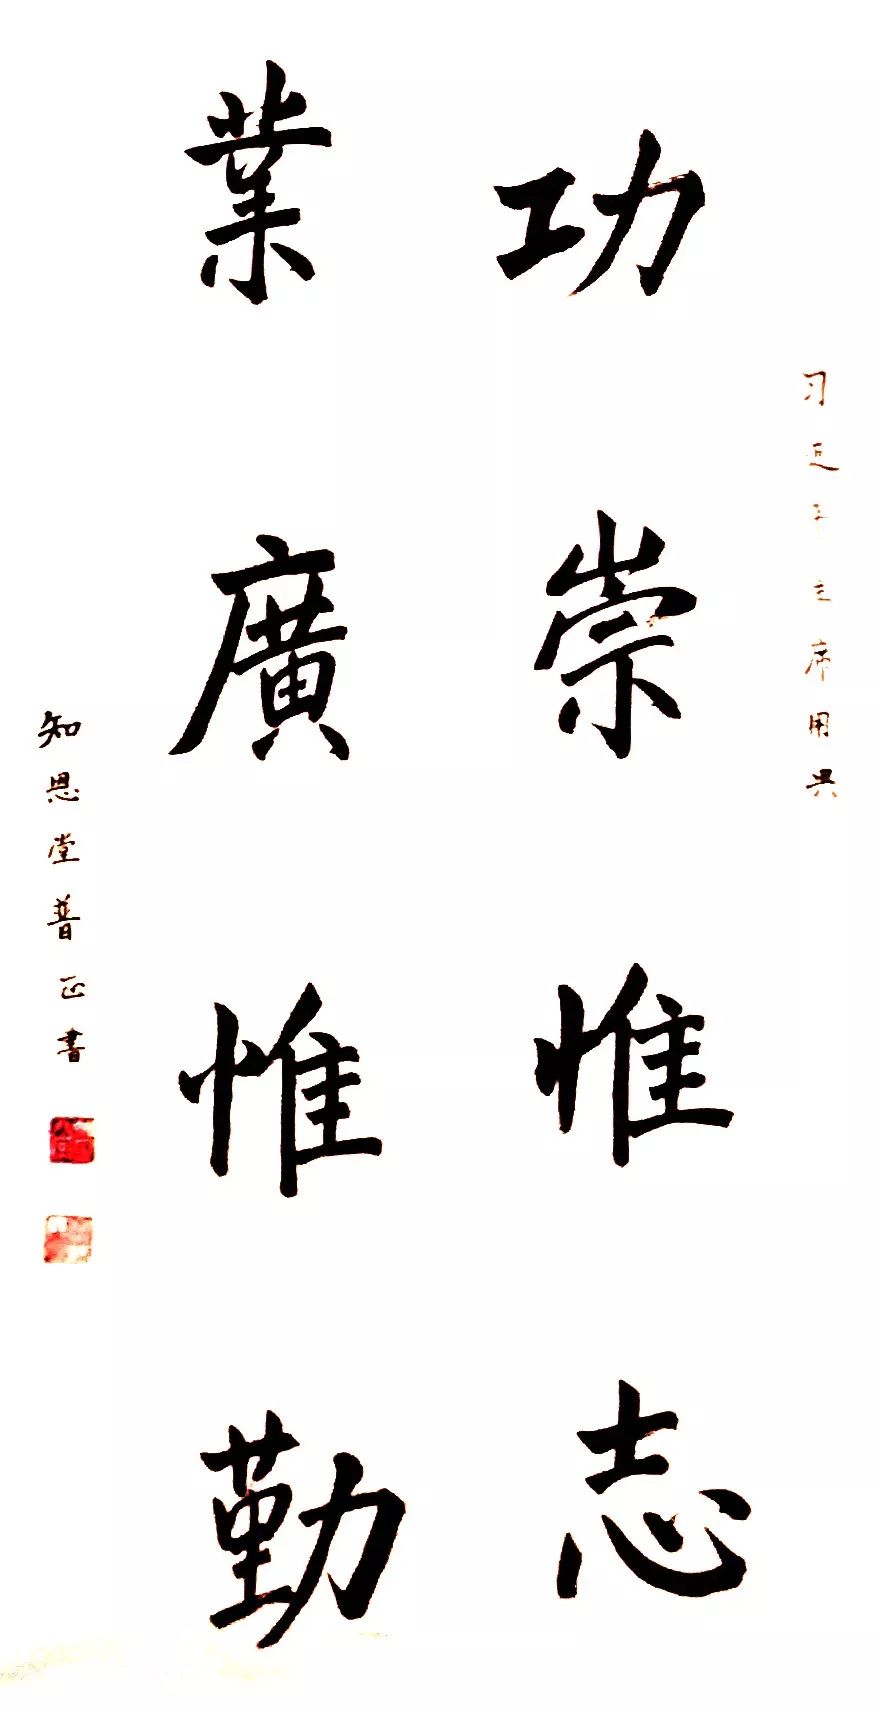 习近平主席用典
功崇惟志
業廣惟勤
知恩堂普正書